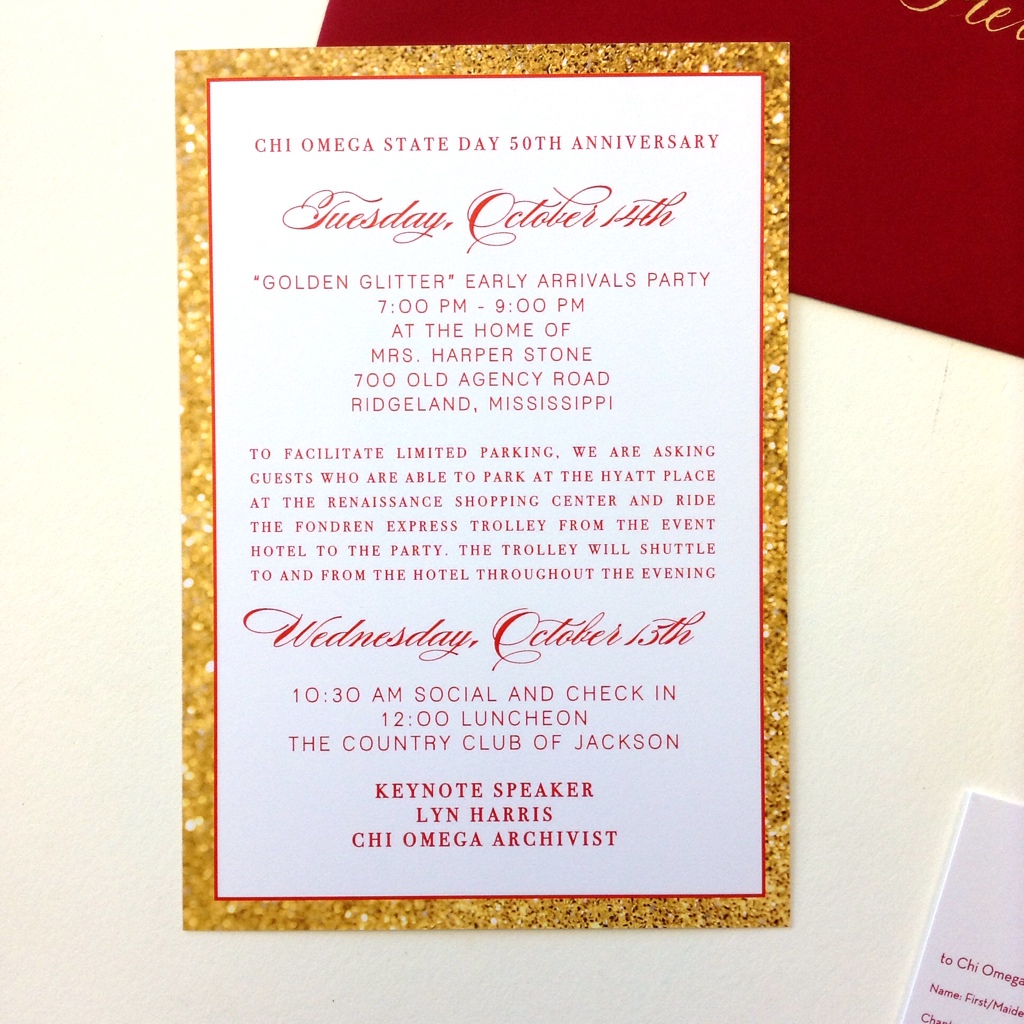 CHI OMEGA STATE DAY 50TH ANNIVERSARY
Tuesday, October 14th
"GOLDEN GLITTER" EARLY ARRIVALS PARTY
7:00 PM - 9:00 PM
AT THE HOME OF
MRS. HARPER STONE
700 OLD AGENCY ROAD
RIDGELAND, MISSISSIPPI
TO FACILITATE LIMITED PARKING, WE ARE ASKING
GUESTS WHO ARE ABLE TO PARK AT THE HYATT PLACE
AT THE RENAISSANCE SHOPPING CENTER AND RIDE
THE FONDREN EXPRESS TROLLEY FROM THE EVENT
HOTEL TO THE PARTY. THE TROLLEY WILL SHUTTLE
TO AND FROM THE HOTEL THROUGHOUT THE EVENING
Wednesday, October 15th
10:30 AM SOCIAL AND CHECK IN
12:00 LUNCHEON
THE COUNTRY CLUB OF JACKSON
KEYNOTE SPEAKER
LYN HARRIS
CHI OMEGA ARCHIVIST
to Chi Omega
Name: First/Maide